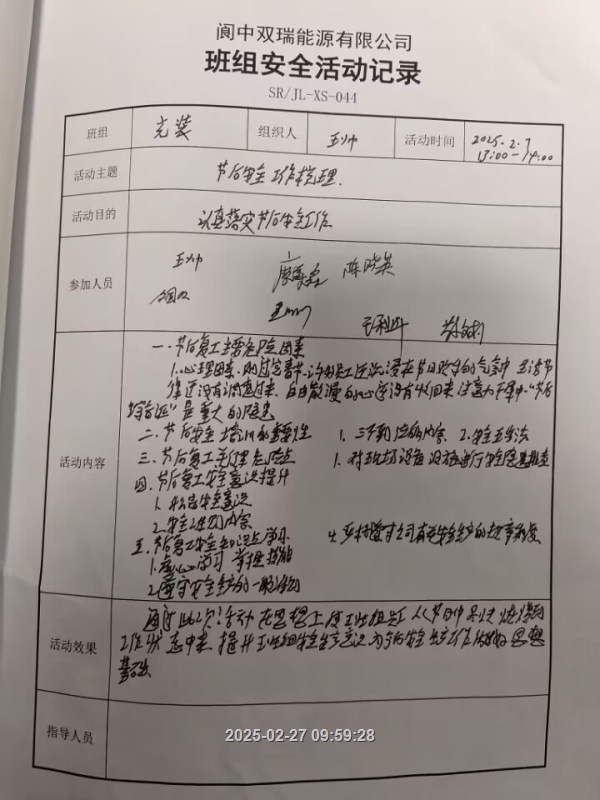 阆中双瑞能源有限公司
班组安全活动记录
SR/JL-XS-044
班组 充装 组织人 王帅 活动时间 2025.2.7
13:00-14:00
活动主题 节后安全工作梳理.
活动目的 认真落实节后安全工作
参加人员 王帅 陈晓英
活动内容
一.节后复工主要危险因素
1.心理因素.刚过完春节.许多员工还沉浸在节日欢乐的气氛中 生活节
律还没有调整过来.自由散漫的心还没有收回来 注意力不集中."节后
综合症"是重大的隐患
二.节后安全培训的重要性 1.三不到位的内容 2.安全五字法
三.节后复工危险点 1.对现场设备设施进行安全隐患排查
四.节后复工安全意识提升
1.安全意识
2.安全培训内容
五.节后复工安全知识点学习
1.虚心学习 掌握技能
2.遵守安全生产的一般
活动效果 通过此次活动 在思想上使班组员工从节日中
工作状态中来.提升班组安全生产意识 为今后安全生产工作做好思想
基础
指导人员
2025-02-27 09:59:28